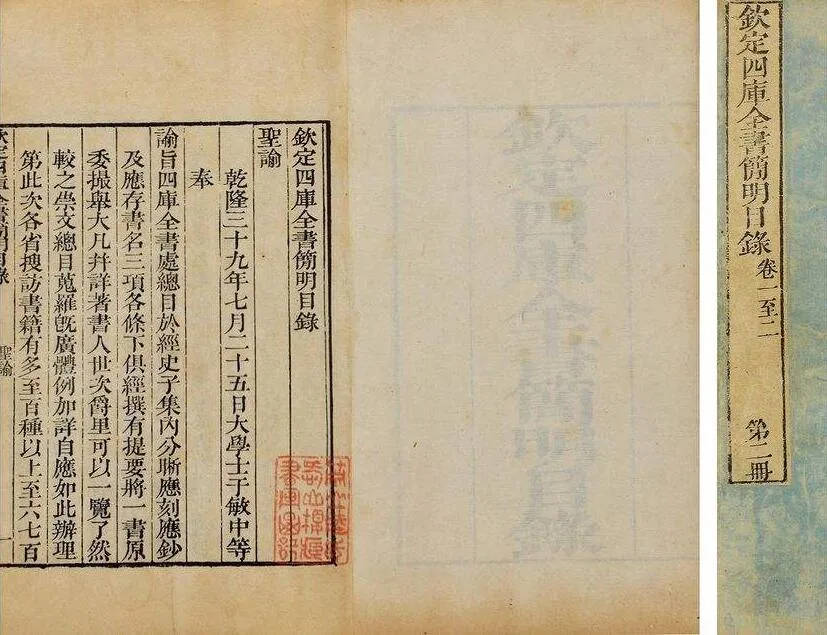 欽定四庫全書簡明目錄
聖諭
乾隆三十九年七月二十五日大學士于敏中等
奉
諭旨四庫全書處總目於經史子集內分晰應刻應鈔
及應存書名三項各條下俱經撰有提要將一書原
委撮舉大凡并詳著書人世次爵里可以一覽了然
較之崇文總目蒐羅既廣體例加詳自應如此辦理
第此次各省搜訪書籍有多至百種以上至六七百
欽定四庫全書簡明目錄
聖諭
一
欽定四庫全書簡明目錄
欽定四庫全書簡明目錄
卷一至二
第二冊